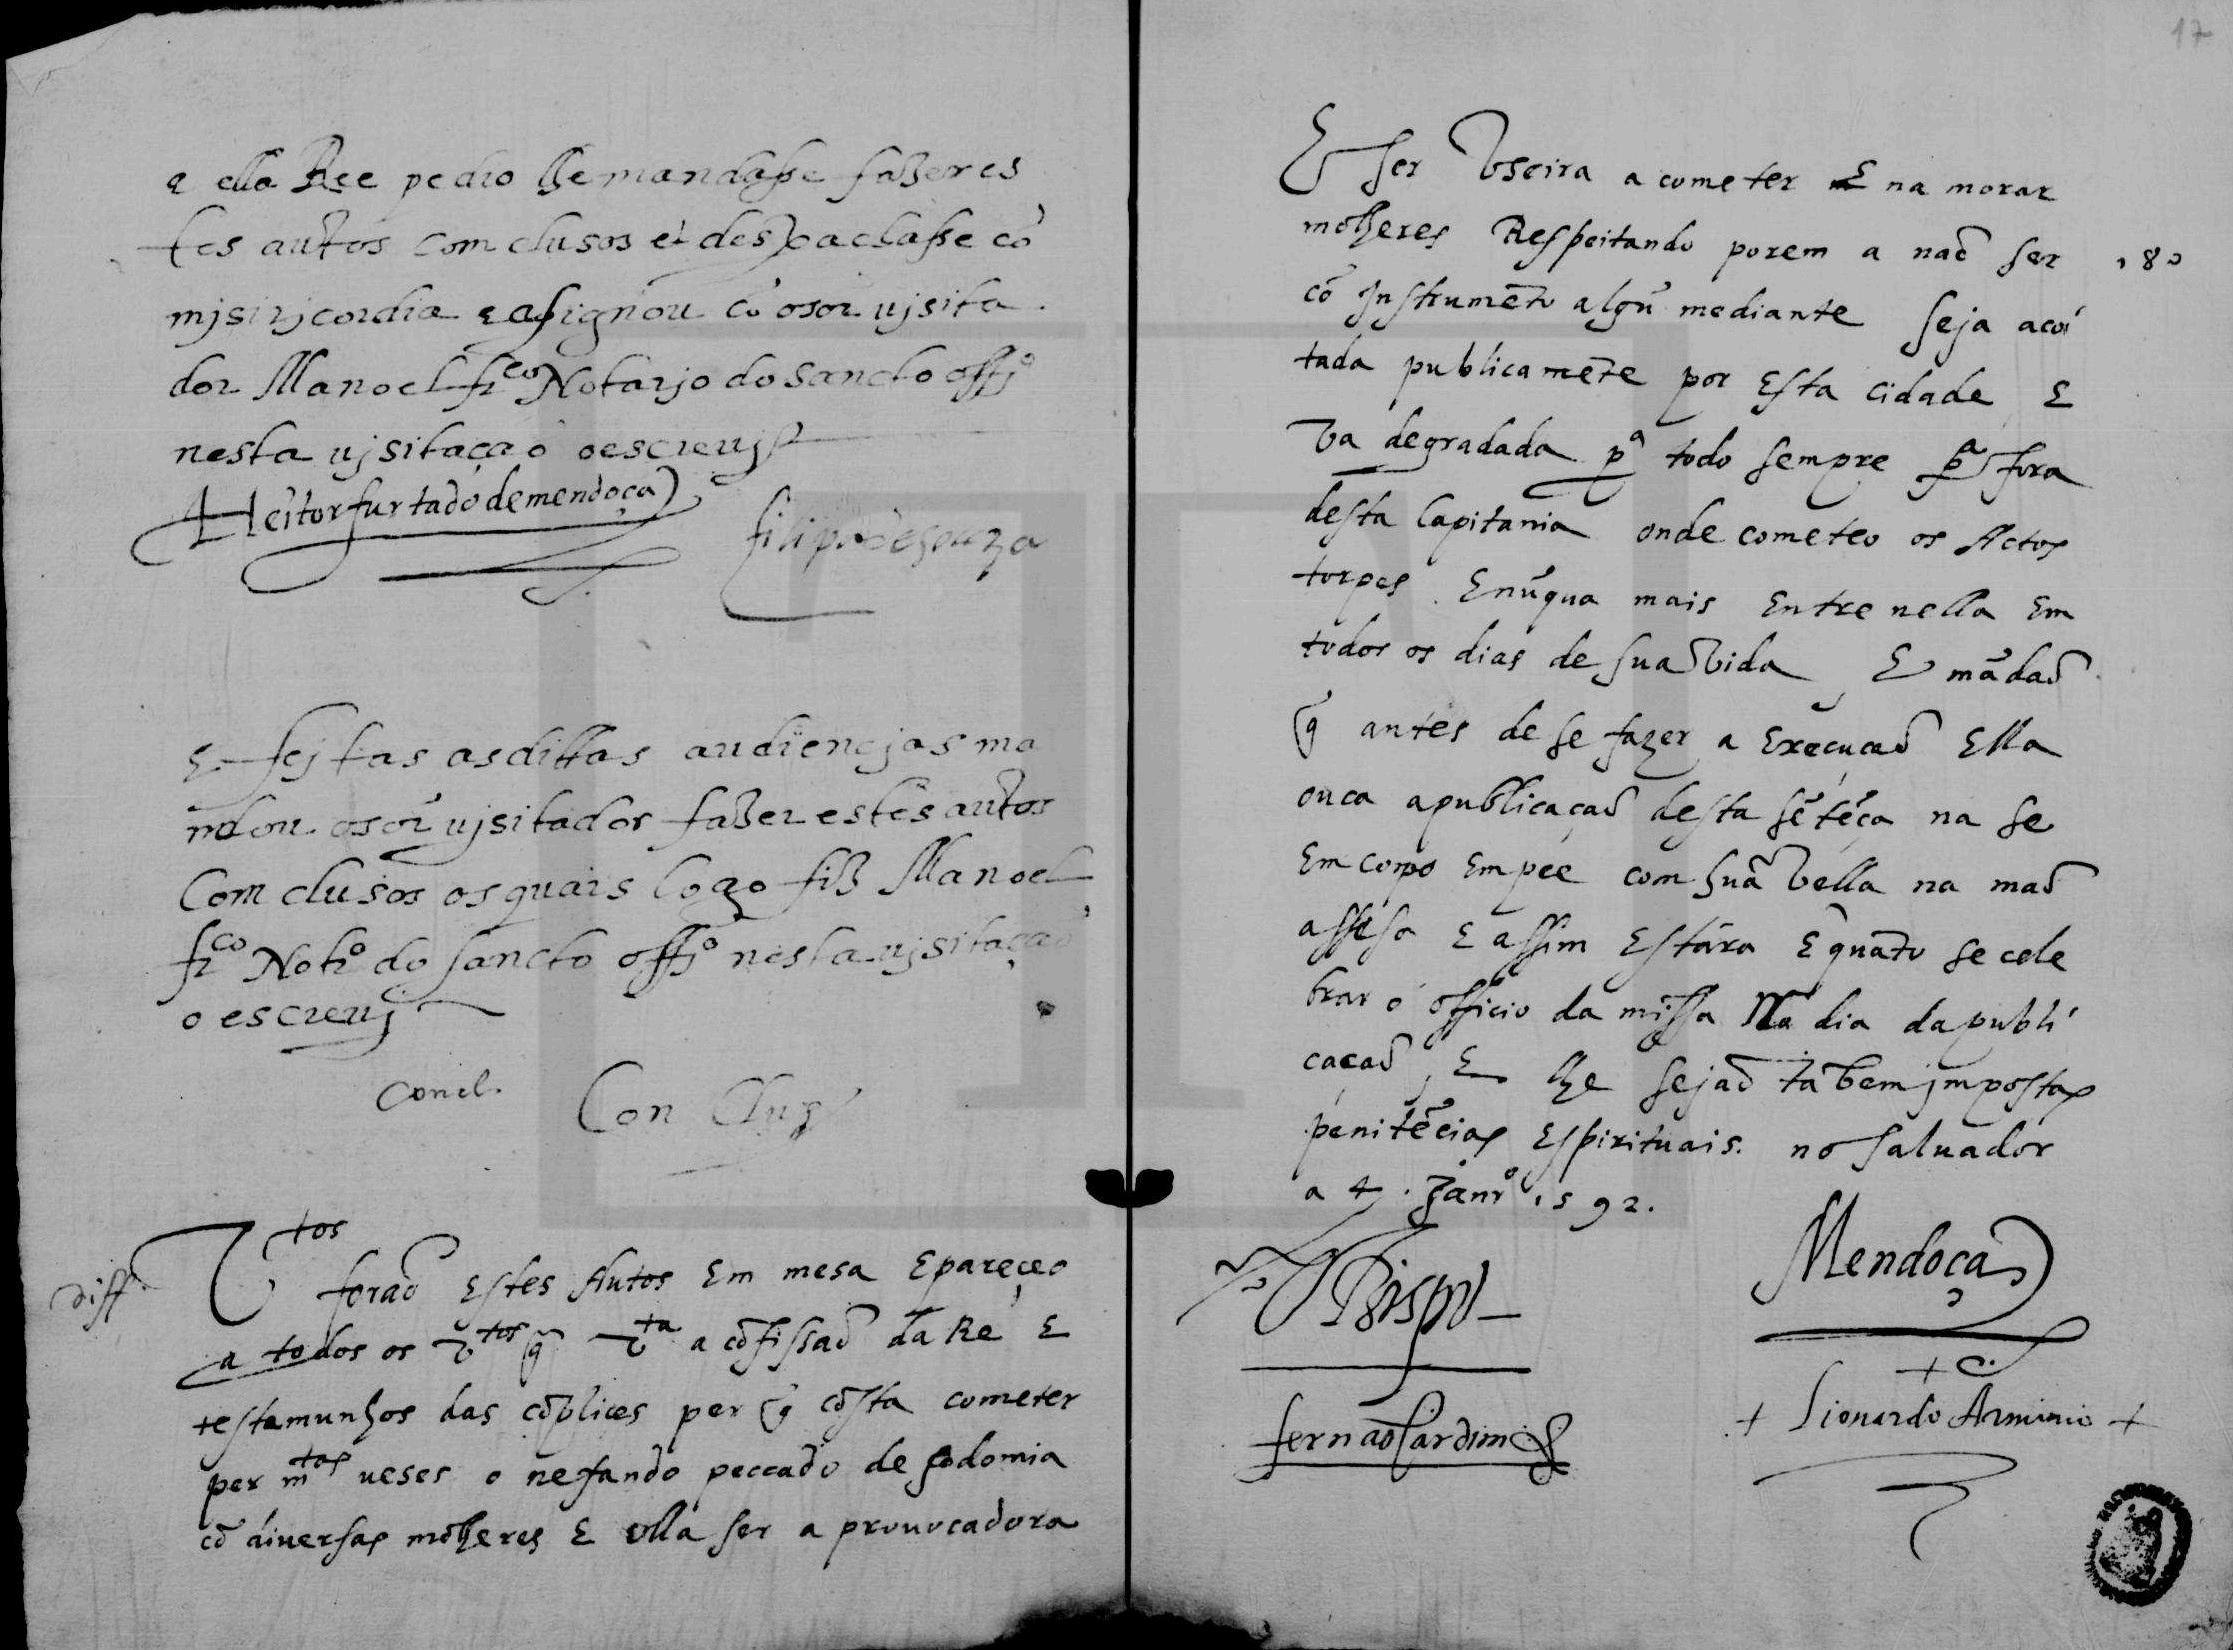 e ella Ree pedio lhe mandasse fazer es
tes autos comclusos et despachasse cõ
misiricordia e asignou cõ o sor visita
dor Manoel frco Notario do sancto offo
nesta visitaçaõ o escrevj
Heitor furtado de mendoça
filipa de souza
E feitas as dittas audiencjas ma
ndou o sor visitador fazer estes autos
Comclusos os quais logo fiz Manoel
frco Noto do sancto offo nesta visitaçaõ
o escrevj
concl.
Con Clus
diff
Vtos foraõ Estes Autos Em mesa E pareçeo
a todos os vtos q̃ vta a cõfissaõ da Re E
testamunhos das cõplices per q̃ cõsta cometer
per mtas ueses o nefando peccado de sodomia
cõ diversas molheres E ella ser a prouocadora
17
E ser Useira a cometer E namorar
molheres Respeitando porem a naõ ser
180
cõ Instrumẽto algũ mediante seja açoi
tada publicamẽte por Esta Cidade E
Va degradada pa todo sempre pa fora
desta Capitania onde cometeo os Actos
torpes E nũqua mais Entre nella Em
todos os dias de sua Vida, E mãdaõ
q̃ antes de se fazer a Execucaõ Ella
ouca a publicaçaõ desta sẽtẽça na se
Em corpo Em pee com sua Vella na maõ
assesa E assim Estara Equãto se cele
brar o officio da missa Na dia da publi
cacaõ, E lhe sejaõ tã bem impostas
penitẽcias Espirituais. no saluador
a 4. Janro 1592.
O Bispo
Mendoça
fernaõ Cardim
+ Lionardo Arminio +